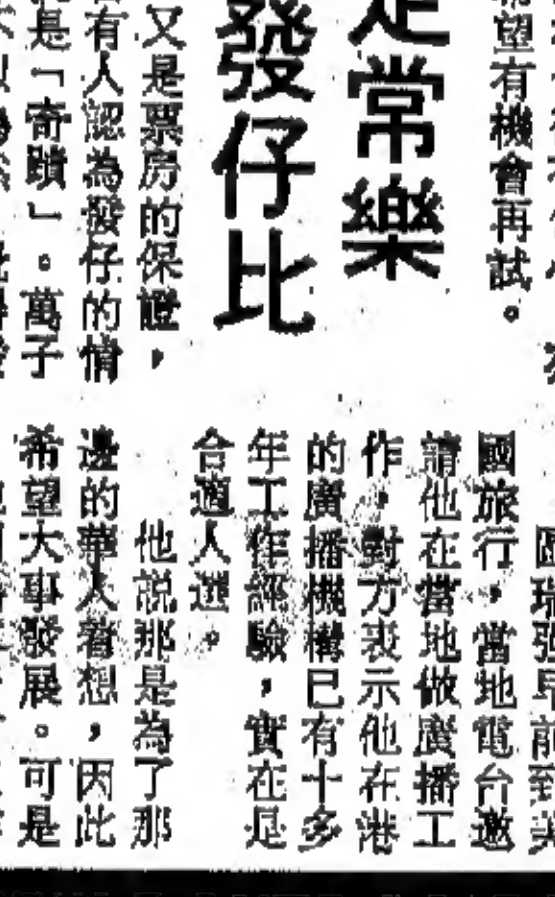 希望有機會再試。
足常樂
發仔比
又是票房的保證，
有人認為發仔的情
是「奇蹟」。萬子
國旅行，當地電台邀
請他在當地做廣播工
作，對方表示他在港
的廣播機構已有十多
年工作經驗，實在是
合適人選。
他說那是為了那
邊的華人着想，因此
希望大事發展。可是